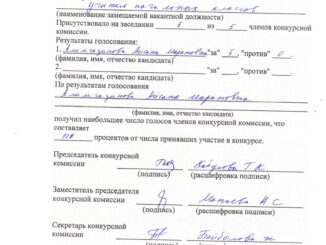 учителя начальных классов
(наименование замещаемой вакантной должности)
Присутствовало на заседании 5 из 5 членов конкурсной
комиссии.
Результаты голосования:
1. Маратовна "за" 5, "против" 0.
(фамилия, имя, отчество кандидата)
2. "за" , "против" .
(фамилия, имя, отчество кандидата)
По результатам
голосования
Маратовна
(фамилия, имя, отчество кандидата)
получил наибольшее число голосов членов конкурсной комиссии, что
составляет
процентов от числа принявших участие в конкурсе.
Председатель конкурсной
комиссии Т.К
(подпись) (расшифровка подписи)
Заместитель председателя
конкурсной комиссии
(подпись) (расшифровка подписи)
Секретарь конкурсной
комиссии
(подпись) (расшифровка подписи)